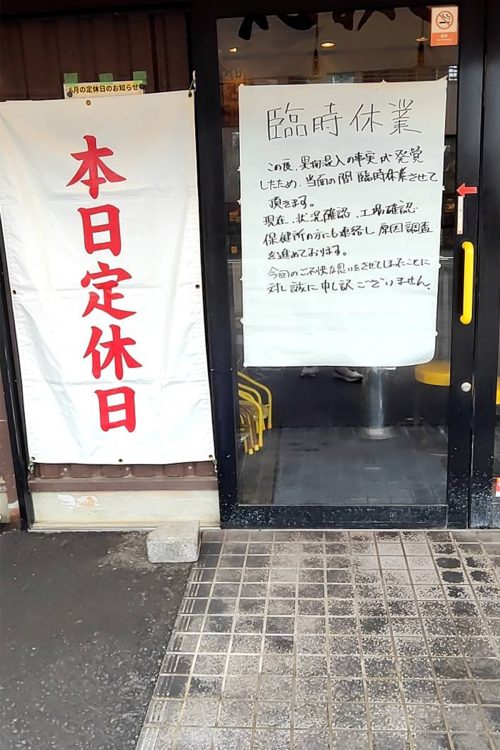 6月の定休日のお知らせ
本日定休日
臨時休業
この度、異物混入の事実が発覚
したため、当面の間 臨時休業させて
頂きます。
現在、状況確認、工場確認、
保健所の方にも連絡し原因調査
を進めております。
今回のご不快な思いをさせてしまったことに
対し誠に申し訳ございません。